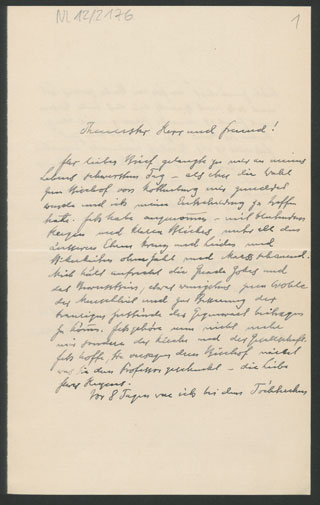 NL 12/2176
1
Theuerster Herr und Freund!
Ihr liebes Brief gelangte zu mir an meines
Lebens schwerstem Tag – als eben die Wahl
zum Bischof von Rottenburg mir gemeldet
wurde und ich meine Entscheidung zu treffen
hatte. Ich habe angenommen – mit blutendem
Herzen und klaren Blickes, unter all dem
äusseren Glanz Kreuz und Leiden und
Bitterkeiten ohne Zahl und Mass schauend.
Mich hält aufrecht die Gnade Gottes und
das Bewusstsein, etwas wenigstens zum Wohle
der Menschheit und zur Besserung der
traurigen Zustände der Gegenwart beitragen
zu können. Ich gehöre nun nicht mehr
mir sondern der Kirche und der Gesellschaft.
Ich hoffe, Sie versagen dem Bischof nicht
was Sie dem Professor geschenkt – die Liebe
Ihres Herzens.
Vor 8 Tagen war ich bei dem